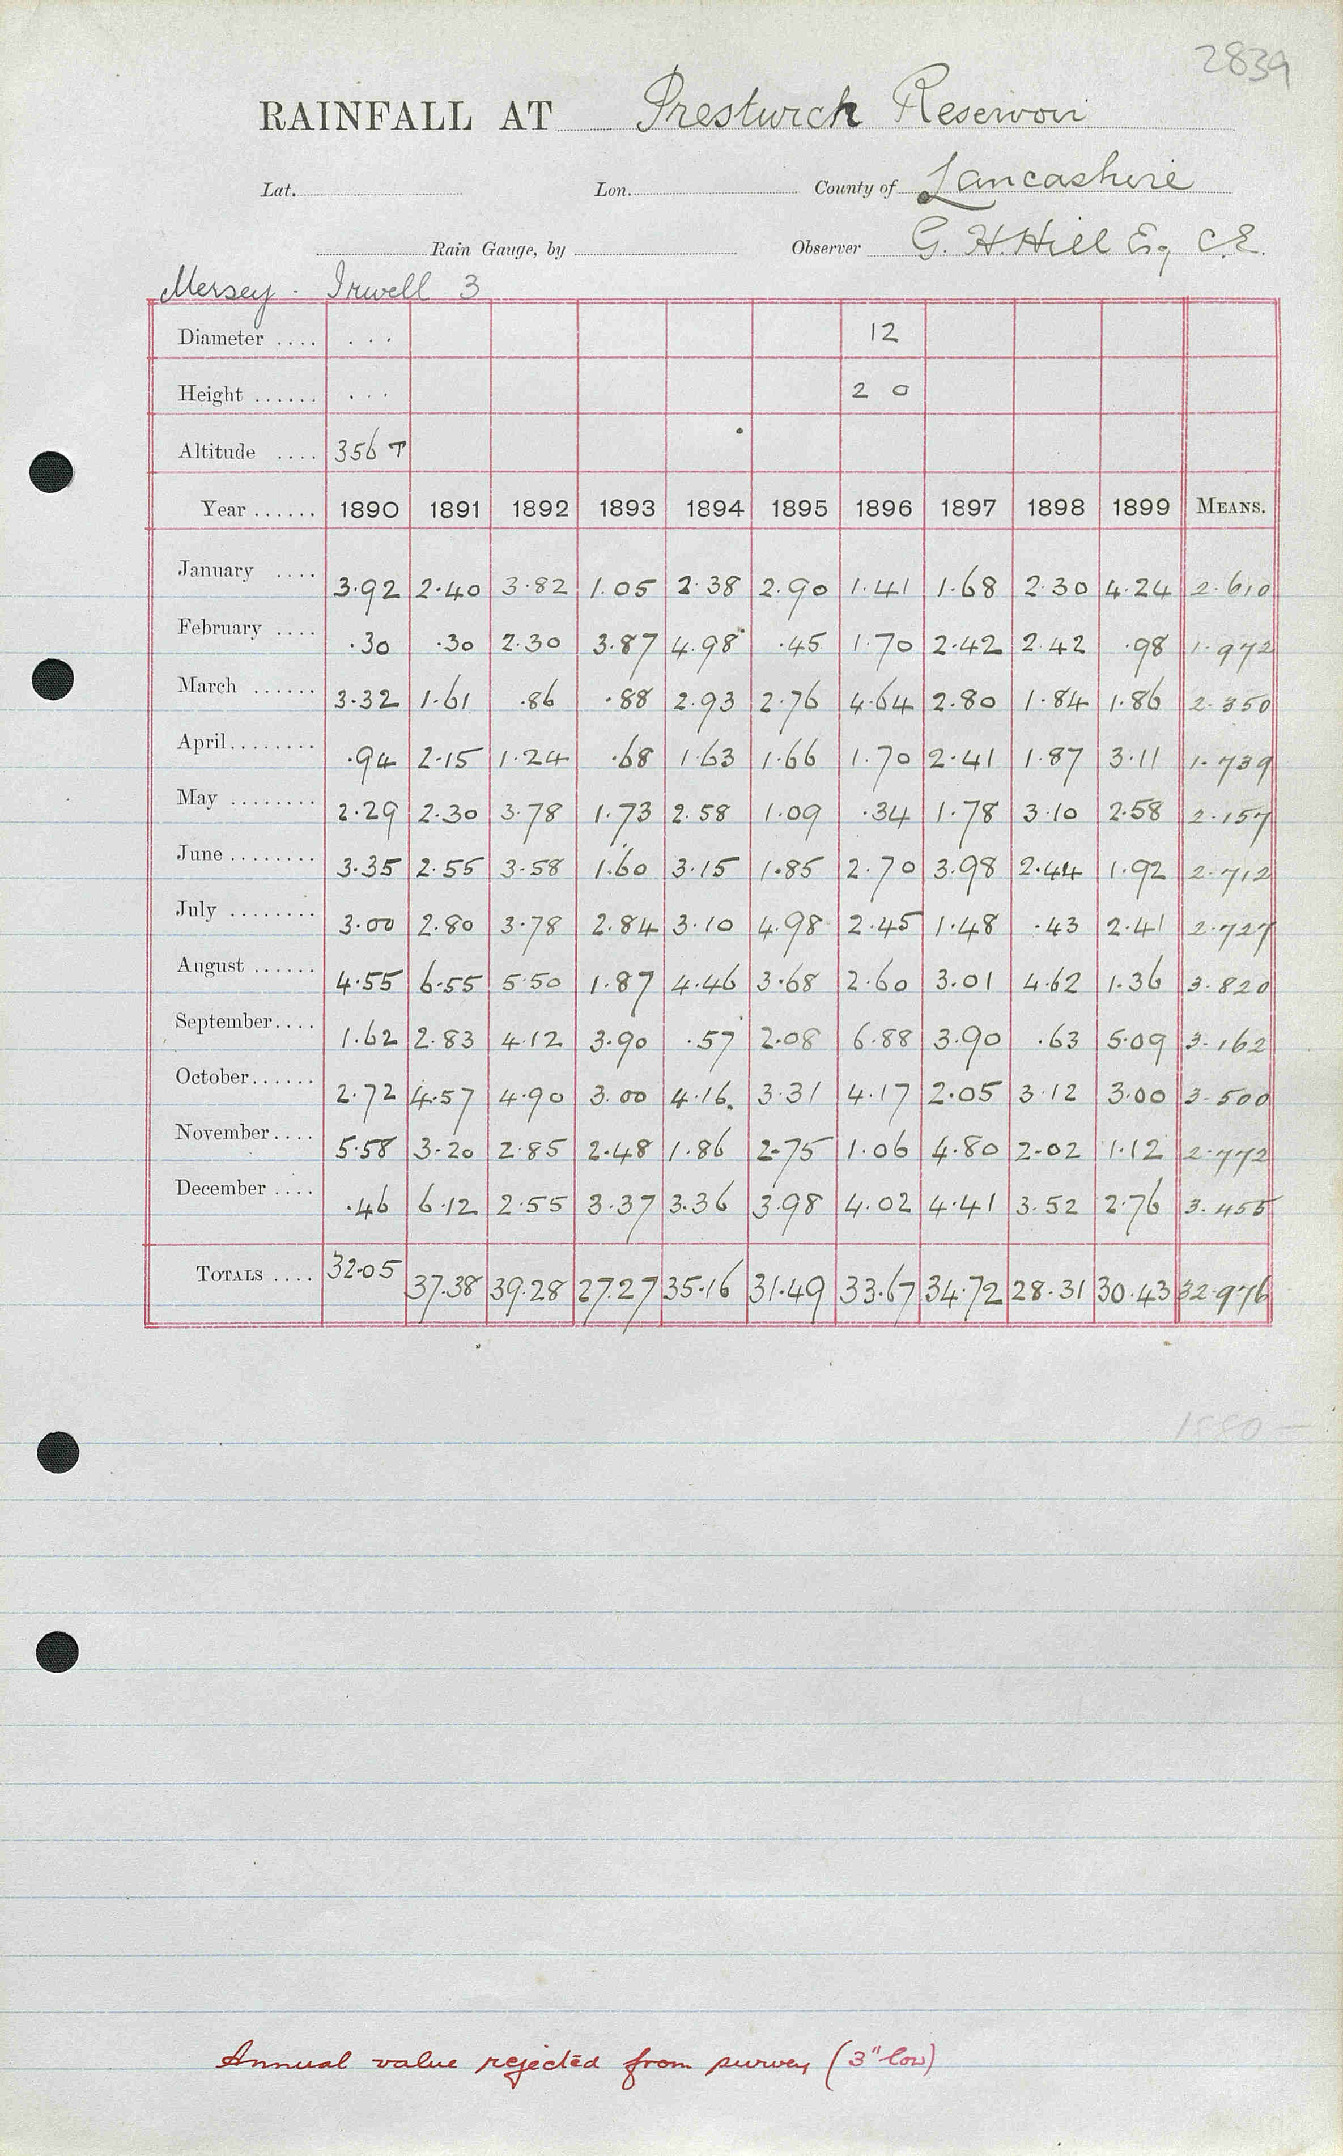 2839
RAINFALL AT Prestwich Reservoir
Lat. Lon. County of Lancashire
Rain Gauge, by Observer G. H. Hill Esq C.E.
Mersey. Irwell 3
Diameter .... ... 12
Height ...... ... 2 0
Altitude .... 356 T
Year ...... 1890 1891 1892 1893 1894 1895 1896 1897 1898 1899 MEANS.
January .... 3.92 2.40 3.82 1.05 2.38 2.90 1.41 1.68 2.30 4.24 2.610
February .... .30 .30 2.30 3.87 4.98 .45 1.70 2.42 2.42 .98 1.972
March ...... 3.32 1.61 .86 .88 2.93 2.76 4.64 2.80 1.84 1.86 2.350
April........ .94 2.15 1.24 .68 1.63 1.66 1.70 2.41 1.87 3.11 1.739
May ........ 2.29 2.30 3.78 1.73 2.58 1.09 .34 1.78 3.10 2.58 2.157
June ........ 3.35 2.55 3.58 1.60 3.15 1.85 2.70 3.98 2.44 1.92 2.712
July ........ 3.00 2.80 3.78 2.84 3.10 4.98 2.45 1.48 .43 2.41 2.727
August ...... 4.55 6.55 5.50 1.87 4.46 3.68 2.60 3.01 4.62 1.36 3.820
September.... 1.62 2.83 4.12 3.90 .57 2.08 6.88 3.90 .63 5.09 3.162
October...... 2.72 4.57 4.90 3.00 4.16 3.31 4.17 2.05 3.12 3.00 3.500
November.... 5.58 3.20 2.85 2.48 1.86 2.75 1.06 4.80 2.02 1.12 2.772
December .... .46 6.12 2.55 3.37 3.36 3.98 4.02 4.41 3.52 2.76 3.455
TOTALS .... 32.05 37.38 39.28 27.27 35.16 31.49 33.67 34.72 28.31 30.43 32.976
1880 -
Annual value rejected from survey (3" low)